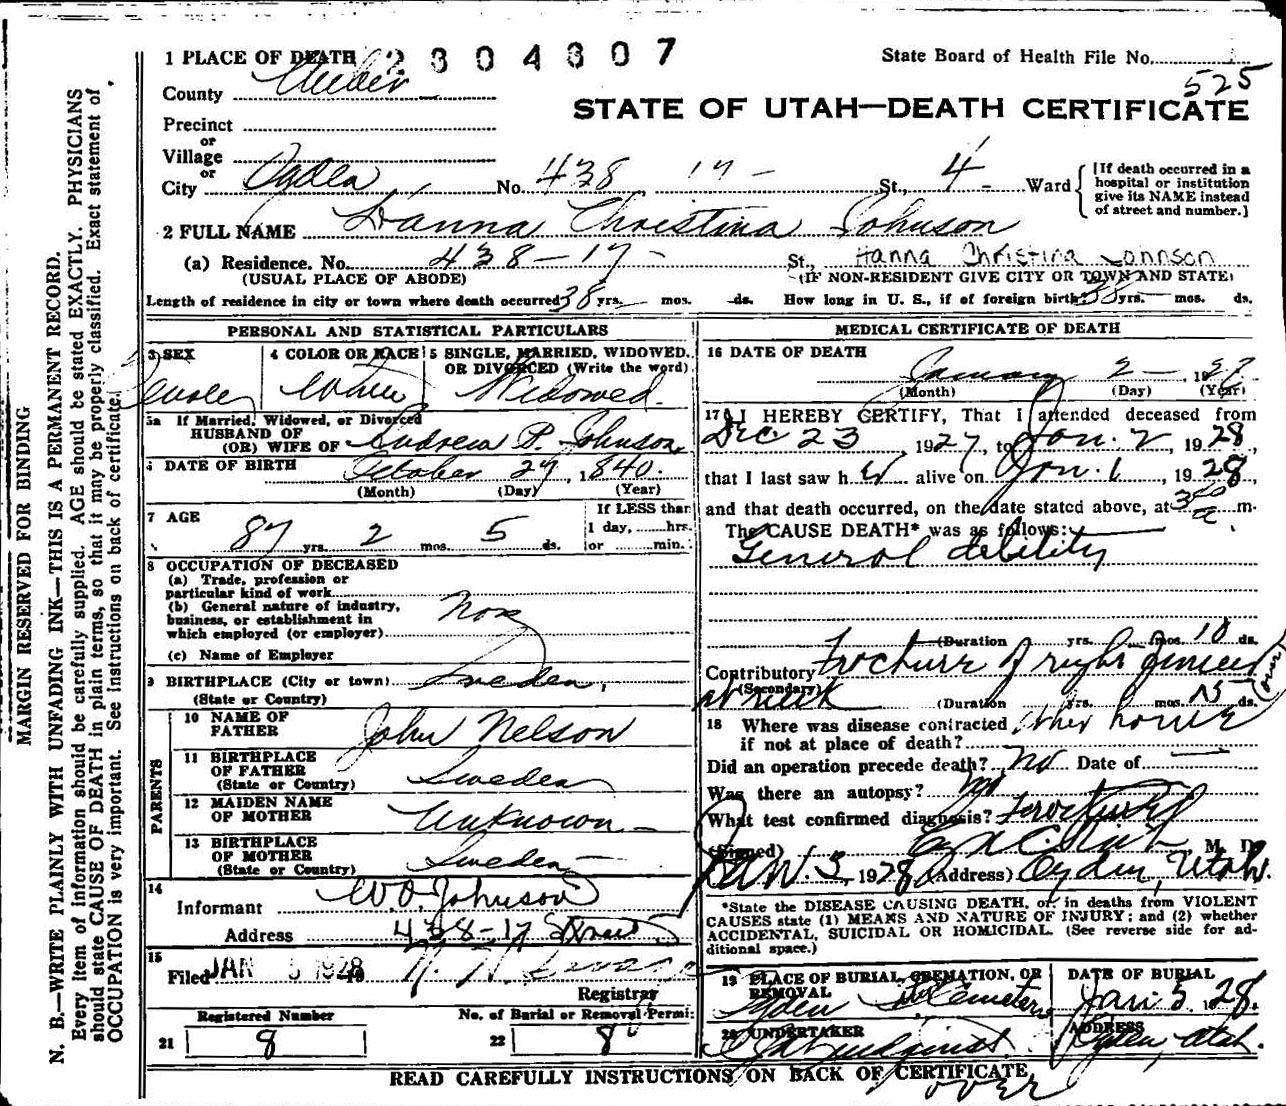 1 PLACE OF DEATH 2304307
State Board of Health File No. 525
County Weber
STATE OF UTAH—DEATH CERTIFICATE
Precinct
or
Village
or
City Ogden No. 438, 17 - St., 4 - Ward
[If death occurred in a hospital or institution give its NAME instead of street and number.]
2 FULL NAME Hanna Christina Johnson
(a) Residence. No. 438-17- St., Hanna Christina Johnson
(USUAL PLACE OF ABODE) (IF NON-RESIDENT GIVE CITY OR TOWN AND STATE)
Length of residence in city or town where death occurred 38 yrs. — mos. -ds. How long in U. S., if of foreign birth? 38 yrs. — mos. ds.
PERSONAL AND STATISTICAL PARTICULARS
3 SEX Female
4 COLOR OR RACE White
5 SINGLE, MARRIED, WIDOWED, OR DIVORCED (Write the word) Widowed.
5a If Married, Widowed, or Divorced
HUSBAND OF
(OR) WIFE OF Andrew P. Johnson
6 DATE OF BIRTH October 27, 1840.
(Month) (Day) (Year)
7 AGE 87 yrs. 2 mos. 5 ds.
If LESS than 1 day, ......hrs.
or ......min.
8 OCCUPATION OF DECEASED
(a) Trade, profession or
particular kind of work
(b) General nature of industry,
business, or establishment in
which employed (or employer)
(c) Name of Employer
9 BIRTHPLACE (City or town) Sweden,
(State or Country)
PARENTS
10 NAME OF FATHER John Nelson
11 BIRTHPLACE OF FATHER Sweden
(State or Country)
12 MAIDEN NAME OF MOTHER Unknown —
13 BIRTHPLACE OF MOTHER Sweden —
(State or Country)
14
Informant W.O. Johnson
Address 438-17 Street
15
Filed JAN 5 1928
Registrar
Registered Number
21 8
No. of Burial or Removal Permit
22 8
MEDICAL CERTIFICATE OF DEATH
16 DATE OF DEATH
January 2 -, 19
(Month) (Day) (Year)
17 I HEREBY CERTIFY, That I attended deceased from
Dec. 23 1927, to Jan. 2, 1928,
that I last saw her alive on Jan. 1, 1928,
and that death occurred, on the date stated above, at 3 50 a m.
The CAUSE DEATH* was as follows:
General debility
(Duration yrs. mos. 10 ds.
Contributory Fracture of right femur (over)
(Secondary) at neck (Duration yrs. mos. 15 ds.
18 Where was disease contracted
if not at place of death? at her home
Did an operation precede death? no Date of —
Was there an autopsy? no
What test confirmed diagnosis?
(Signed) M. D.
JAN. 3, 1928 (Address) Ogden, Utah.
*State the DISEASE CAUSING DEATH, or in deaths from VIOLENT
CAUSES state (1) MEANS AND NATURE OF INJURY; and (2) whether
ACCIDENTAL, SUICIDAL OR HOMICIDAL. (See reverse side for ad-
ditional space.)
19 PLACE OF BURIAL, CREMATION, OR REMOVAL
Ogden Cemetery
DATE OF BURIAL
Jan. 5, 1928.
20 UNDERTAKER
Lindquist.
ADDRESS
Ogden, Utah.
READ CAREFULLY INSTRUCTIONS ON BACK OF CERTIFICATE
over
MARGIN RESERVED FOR BINDING
N. B.—WRITE PLAINLY WITH UNFADING INK—THIS IS A PERMANENT RECORD.
Every item of information should be carefully supplied. AGE should be stated EXACTLY. PHYSICIANS
should state CAUSE OF DEATH in plain terms, so that it may be properly classified. Exact statement of
OCCUPATION is very important. See instructions on back of certificate.